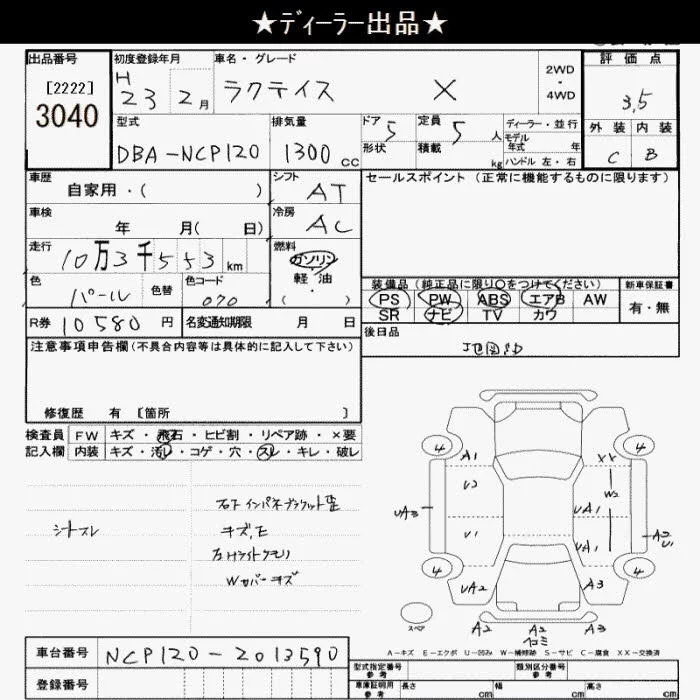 ★ディーラー出品★
出品番号 初度登録年月 車名・グレード 2WD・4WD 評価点
[2222] 3040 H 23 2月 ラクティス X 3,5
型式 排気量 ドア 5 定員 5人 ディーラー・並行 外装 内装
DBA-NCP120 1300cc 形状 積載 kg モデル年式 年 ハンドル 左・右 C B
車歴 自家用・( ) シフト AT セールスポイント(正常に機能するものに限ります)
車検 年 月( 日) 冷房 AC
走行 10万3千553km 燃料 ガソリン・軽油・( )
色 パール 色替 色コード 070 装備品(純正品に限り○をつけてください) 新車保証書
PS PW ABS エアB AW 有・無
R券 10580円 名変通知期限 月 日 SR ナビ TV カワ
注意事項申告欄(不具合内容等は具体的に記入して下さい) 後日品
地図SD
修復歴 有 [箇所 ]
検査員 FW キズ・飛石・ヒビ割・リペア跡・×要
記入欄 内装 キズ・汚レ・コゲ・穴・スレ・キレ・破レ
シートスレ
キズ,E
Wカバーキズ
4 A1 XX 4
U2 W2
UA3 UA1
U1 UA1 A2 U1
4 UA2 A3 4
スペア A2 A2 A3
A-キズ E-エクボ U-凹み W-補修跡 S-サビ C-腐食 XX-交換済
車台番号 NCP120-2013590
型式指定番号 参考 類別区分番号 参考
登録番号 車庫証明用 参考 長さ cm 幅 cm 高さ cm